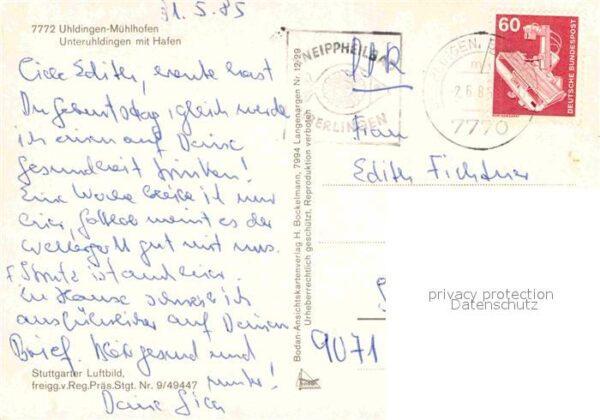 1.5.85
7772 Uhldingen-Mühlhofen
Unteruhldingen mit Hafen
Liebe Edith, heute hast
Du Geburtstag, gleich werde
ich einen auf Deine
Gesundheit trinken!
Eine Woche bleibe ich nur
hier, Gottlob meint es der
Wettergott gut mit uns.
ist auch hier.
Zu Hause schreibe ich
ausführlicher auf Deinen
Brief. Bleib gesund und
munter!
Deine
Stuttgarter Luftbild,
freigg.v.Reg.Präs.Stgt. Nr. 9/49447
Bodan-Ansichtskartenverlag H. Bockelmann, 7994 Langenargen Nr. 12/29
Urheberrechtlich geschützt. Reproduktion verboten
NEIPPHEILB
BERLINGEN
DDR
7770
60
DEUTSCHE BUNDESPOST
Frau
Edith Fichtner
9071
privacy protection
Datenschutz